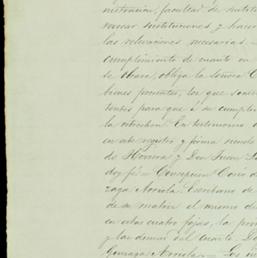 ministracion, facultad de sustitu
vocar sustituciones y hacer
las relevaciones necesarias.
cumplimiento de cuanto en
se obrare, obliga la señora C
bienes presentes, los que some
tentes para que á su cumplim
la estrechen. En testimonio
en este registro y firma siendo
de Herrera y Don Juan
doy fé = Concepcion Cano de
zaga Arriola Escribano de
de su matriz el mismo de
en estas cuatro fojas, la pri
y las demas del cuarto. Do
Gonzaga Arriola =